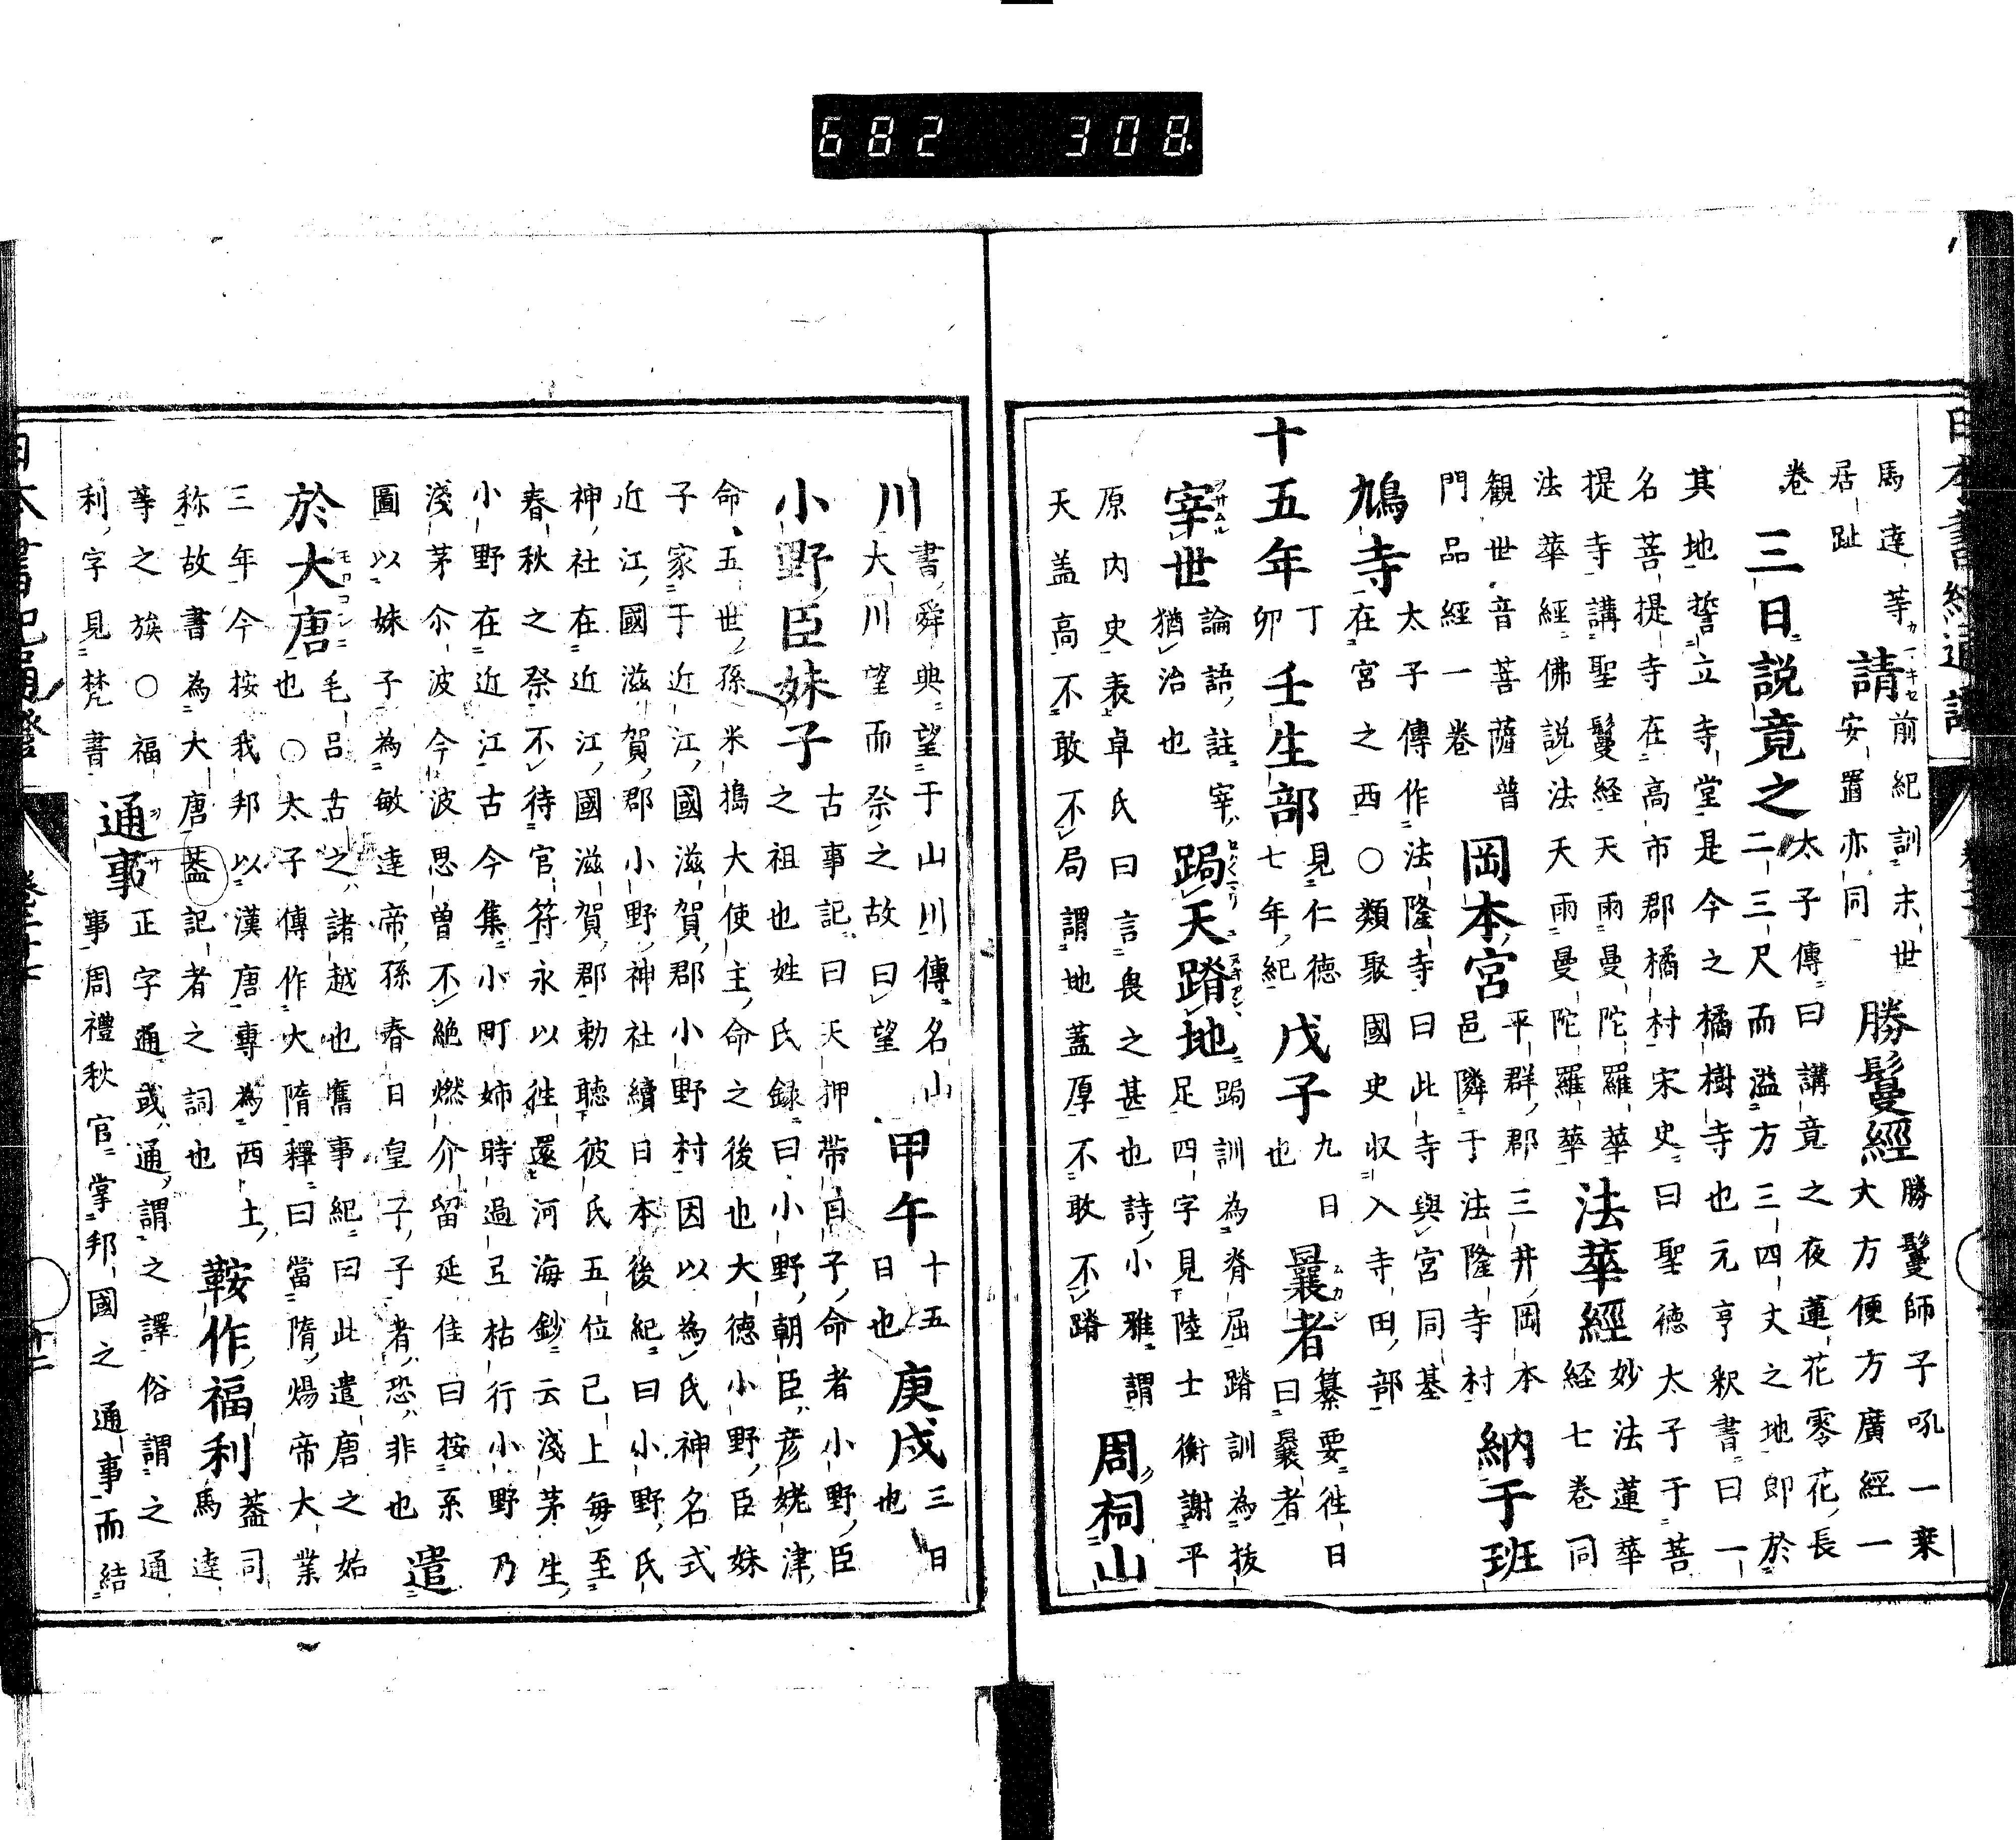 馬達等
居趾
請
前紀訓末世
安置亦同
勝鬘經
勝鬘師子吼一乗
大方便方廣經一
卷
三日説竟之
太子傳曰講竟之夜蓮花零花長
二三尺而溢方三四丈之地即於
其地誓立寺堂是今之橘樹寺也元亨釈書曰一
名菩提寺在高市郡橘村宋史曰聖德太子于菩
提寺講聖鬘経天雨曼陀羅華
法華經佛説法天雨曼陀羅華
法華經
妙法蓮華
経七卷同
観世音菩薩普
門品經一卷
岡本宮
平群郡三井岡本
邑隣于法隆寺村
納于班
鳩寺
太子傳作法隆寺曰此寺與宮同基
在宮之西○類聚國史収入寺田部
十五年
丁
卯
壬生部
見仁德
七年紀
戊子
九日
也
曩者
纂要徃日
曰曩者
宰世
論語註宰
猶治也
跼天蹐地
跼訓為脊屈蹐訓為抜
足四字見陸士衡謝平
原内史表卓氏曰言畏之甚也詩小雅謂
天盖高不敢不局謂地蓋厚不敢不蹐
周祠山
川
書舜典望于山川傳名山
大川望而祭之故曰望
甲午
十五
日也
庚戌
三日
也
小野臣妹子
古事記曰天押帶日子命者小野臣
之祖也姓氏録曰小野朝臣彦姥津
命五世孫米搗大使主命之後也大德小野臣妹
子家于近江國滋賀郡小野村因以為氏神名式
近江國滋賀郡小野神社續日本後紀曰小野氏
神社在近江國滋賀郡勅聽彼氏五位已上毎至
春秋之祭不待官符永以徃還河海鈔云淺茅生
小野在近江古今集小町姉時過弖枯行小野乃
淺茅尒波今波思曽不絶燃介留延佳曰按系
圖以妹子為敏達帝孫春日皇子子者恐非也
遣
於大唐
毛呂古之諸越也舊事紀曰此遣唐之始
也○太子傳作大隋釋曰當隋煬帝大業
三年今按我邦以漢唐專為西土
称故書為大唐葢記者之詞也
鞍作福利
葢司
馬達
等之族○福
利字見梵書
通事
正字通或通謂之譯俗謂之通
事周禮秋官掌邦國之通事而結
682 308